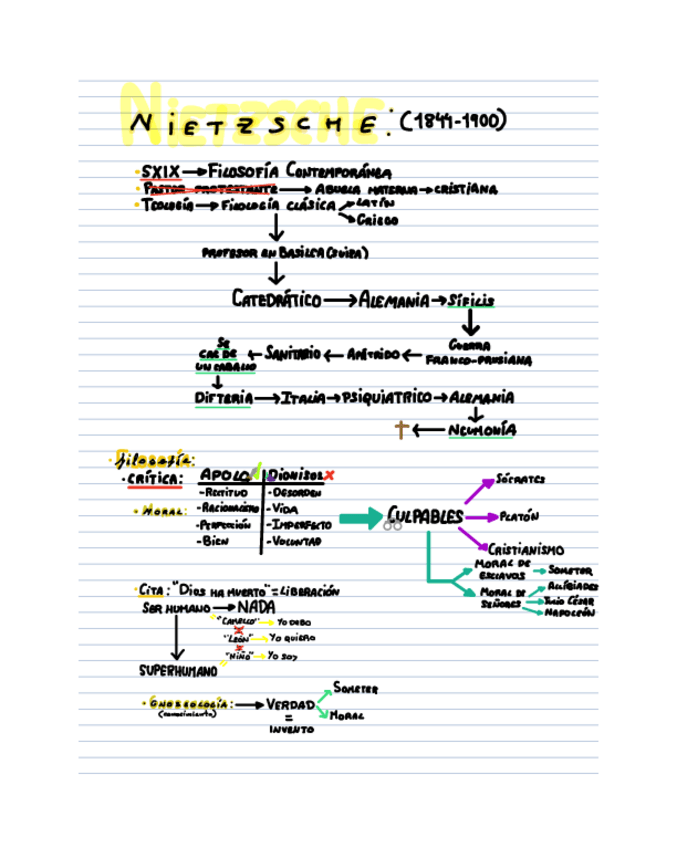 NIETZSCHE: (1844-1900)
· SXIX → FILOSOFÍA CONTEMPORÁNEA
· PASTOR PROTESTANTE → ABUELA MATERNA → CRISTIANA
· TEOLOGÍA → FILOLOGÍA CLÁSICA → LATÍN
→ GRIEGO
PROFESOR EN BASILEA (SUIZA)
CATEDRÁTICO → ALEMANIA → SÍFILIS
GUERRA
FRANCO-PRUSIANA
SE
CAE DE ← SANITARIO ← APÁTRIDO ←
UN CABALLO
DIFTERIA → ITALIA → PSIQUIATRICO → ALEMANIA
✝ ← NEUMONÍA
· filosofía:
· CRÍTICA: APOLO | DIONISOS X
· MORAL:
- RECTITUD - DESORDEN
- VIDA
- PERFECCIÓN - IMPERFECTO
- BIEN - VOLUNTAD
CULPABLES
→ SÓCRATES
→ PLATÓN
→ CRISTIANISMO
MORAL DE ESCLAVOS → SOMETER
MORAL DE SEÑORES → ALCIBIADES
→ JULIO CÉSAR
→ NAPOLEÓN
· CITA: "DIOS HA MUERTO" = LIBERACIÓN
SER HUMANO → NADA
"CAMELLO" → YO DEBO
"LEÓN" → YO QUIERO
"NIÑO" → YO SOY
SUPERHUMANO
· GNOSEOLOGÍA: → VERDAD → SOMETER
(conocimiento) → MORAL
=
INVENTO